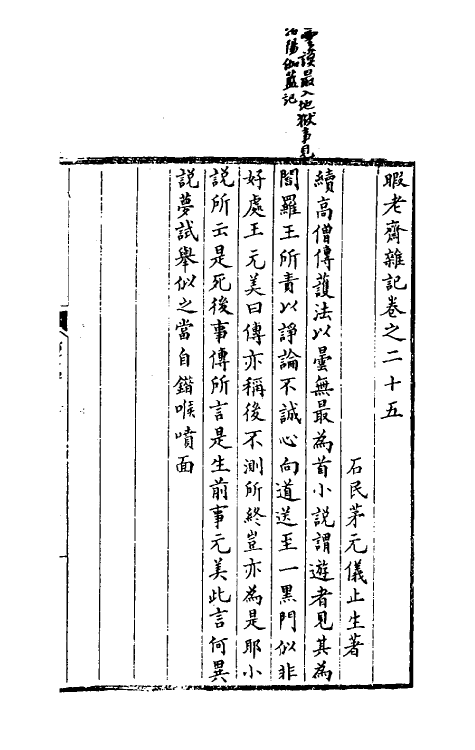 曇謨最入地獄事見
洛陽伽藍記
暇老齋雜記卷之二十五
石民茅元儀止生著
續高僧傳護法以曇無最為首小說謂遊者見其為
閻羅王所責以諍論不誠心向道送至一黑門似非
好處王元美曰傳亦稱後不測所終豈亦為是耶小
說所云是死後事傳所言是生前事元美此言何異
說夢試舉似之當自鎚喉噴面